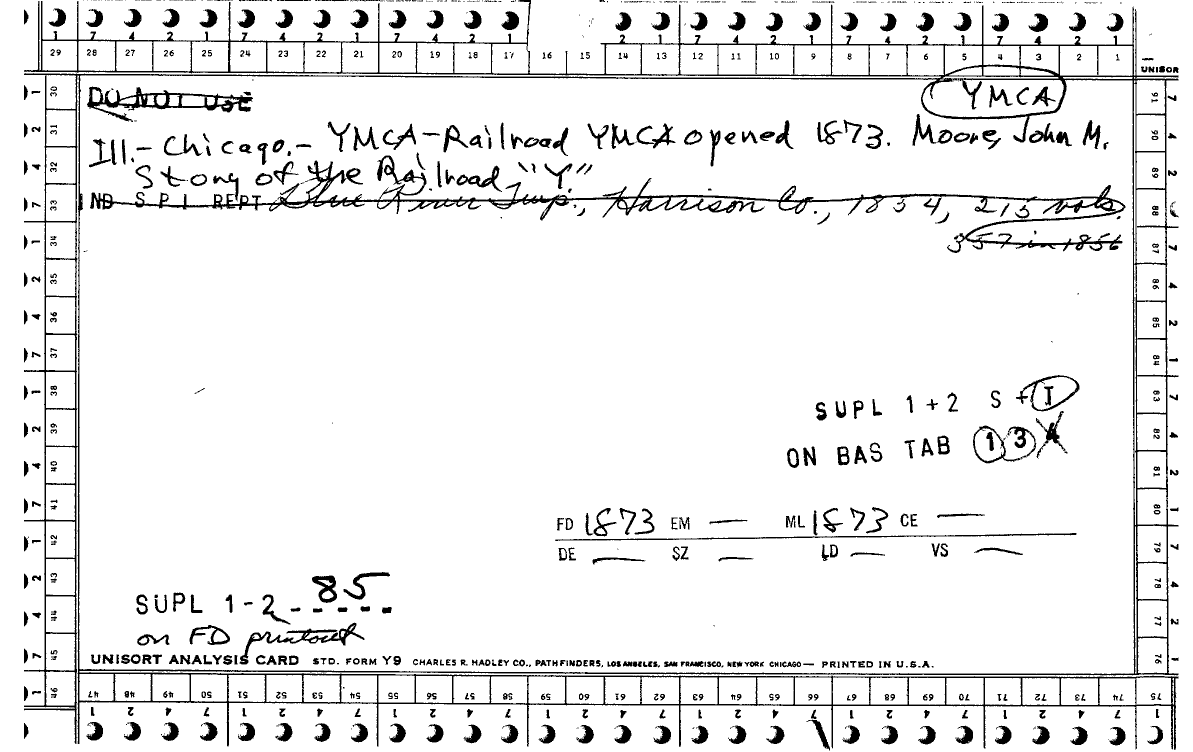 1 7 4 2 1 7 4 2 1 7 4 2 1 2 1 7 4 2 1 7 4 2 1 7 4 2 1
29 28 27 26 25 24 23 22 21 20 19 18 17 16 15 14 13 12 11 10 9 8 7 6 5 4 3 2 1
UNISOR
DO NOT USE
YMCA
Ill.- Chicago.- YMCA-Railroad YMCA opened 1873. Moore, John M.
Story of the Railroad "Y."
IND S P I REPT Blue River Twp., Harrison Co., 1854, 215 vols.
357 in 1856
SUPL 1+2 S + I
ON BAS TAB 1 3 4
FD 1873 EM — ML 1873 CE —
DE — SZ — LD — VS —
SUPL 1-2 - 85
on FD printout
UNISORT ANALYSIS CARD STD. FORM Y9 CHARLES R. HADLEY CO., PATHFINDERS, LOS ANGELES, SAN FRANCISCO, NEW YORK CHICAGO — PRINTED IN U.S.A.
1 2 4 7 1 2 4 7 1 2 4 7 1 2 4 7 46
30 31 32 33 34 35 36 37 38 39 40 41 42 43 44 45
91 90 89 88 87 86 85 84 83 82 81 80 79 78 77 76
7 4 2 1 7 4 2 1 7 4 2 1 7 4 2 1
47 48 49 50 51 52 53 54 55 56 57 58 59 60 61 62 63 64 65 66 67 68 69 70 71 72 73 74 75
1 2 4 7 1 2 4 7 1 2 4 7 1 2 4 7 1 2 4 7 1 2 4 7 1 2 4 7 1